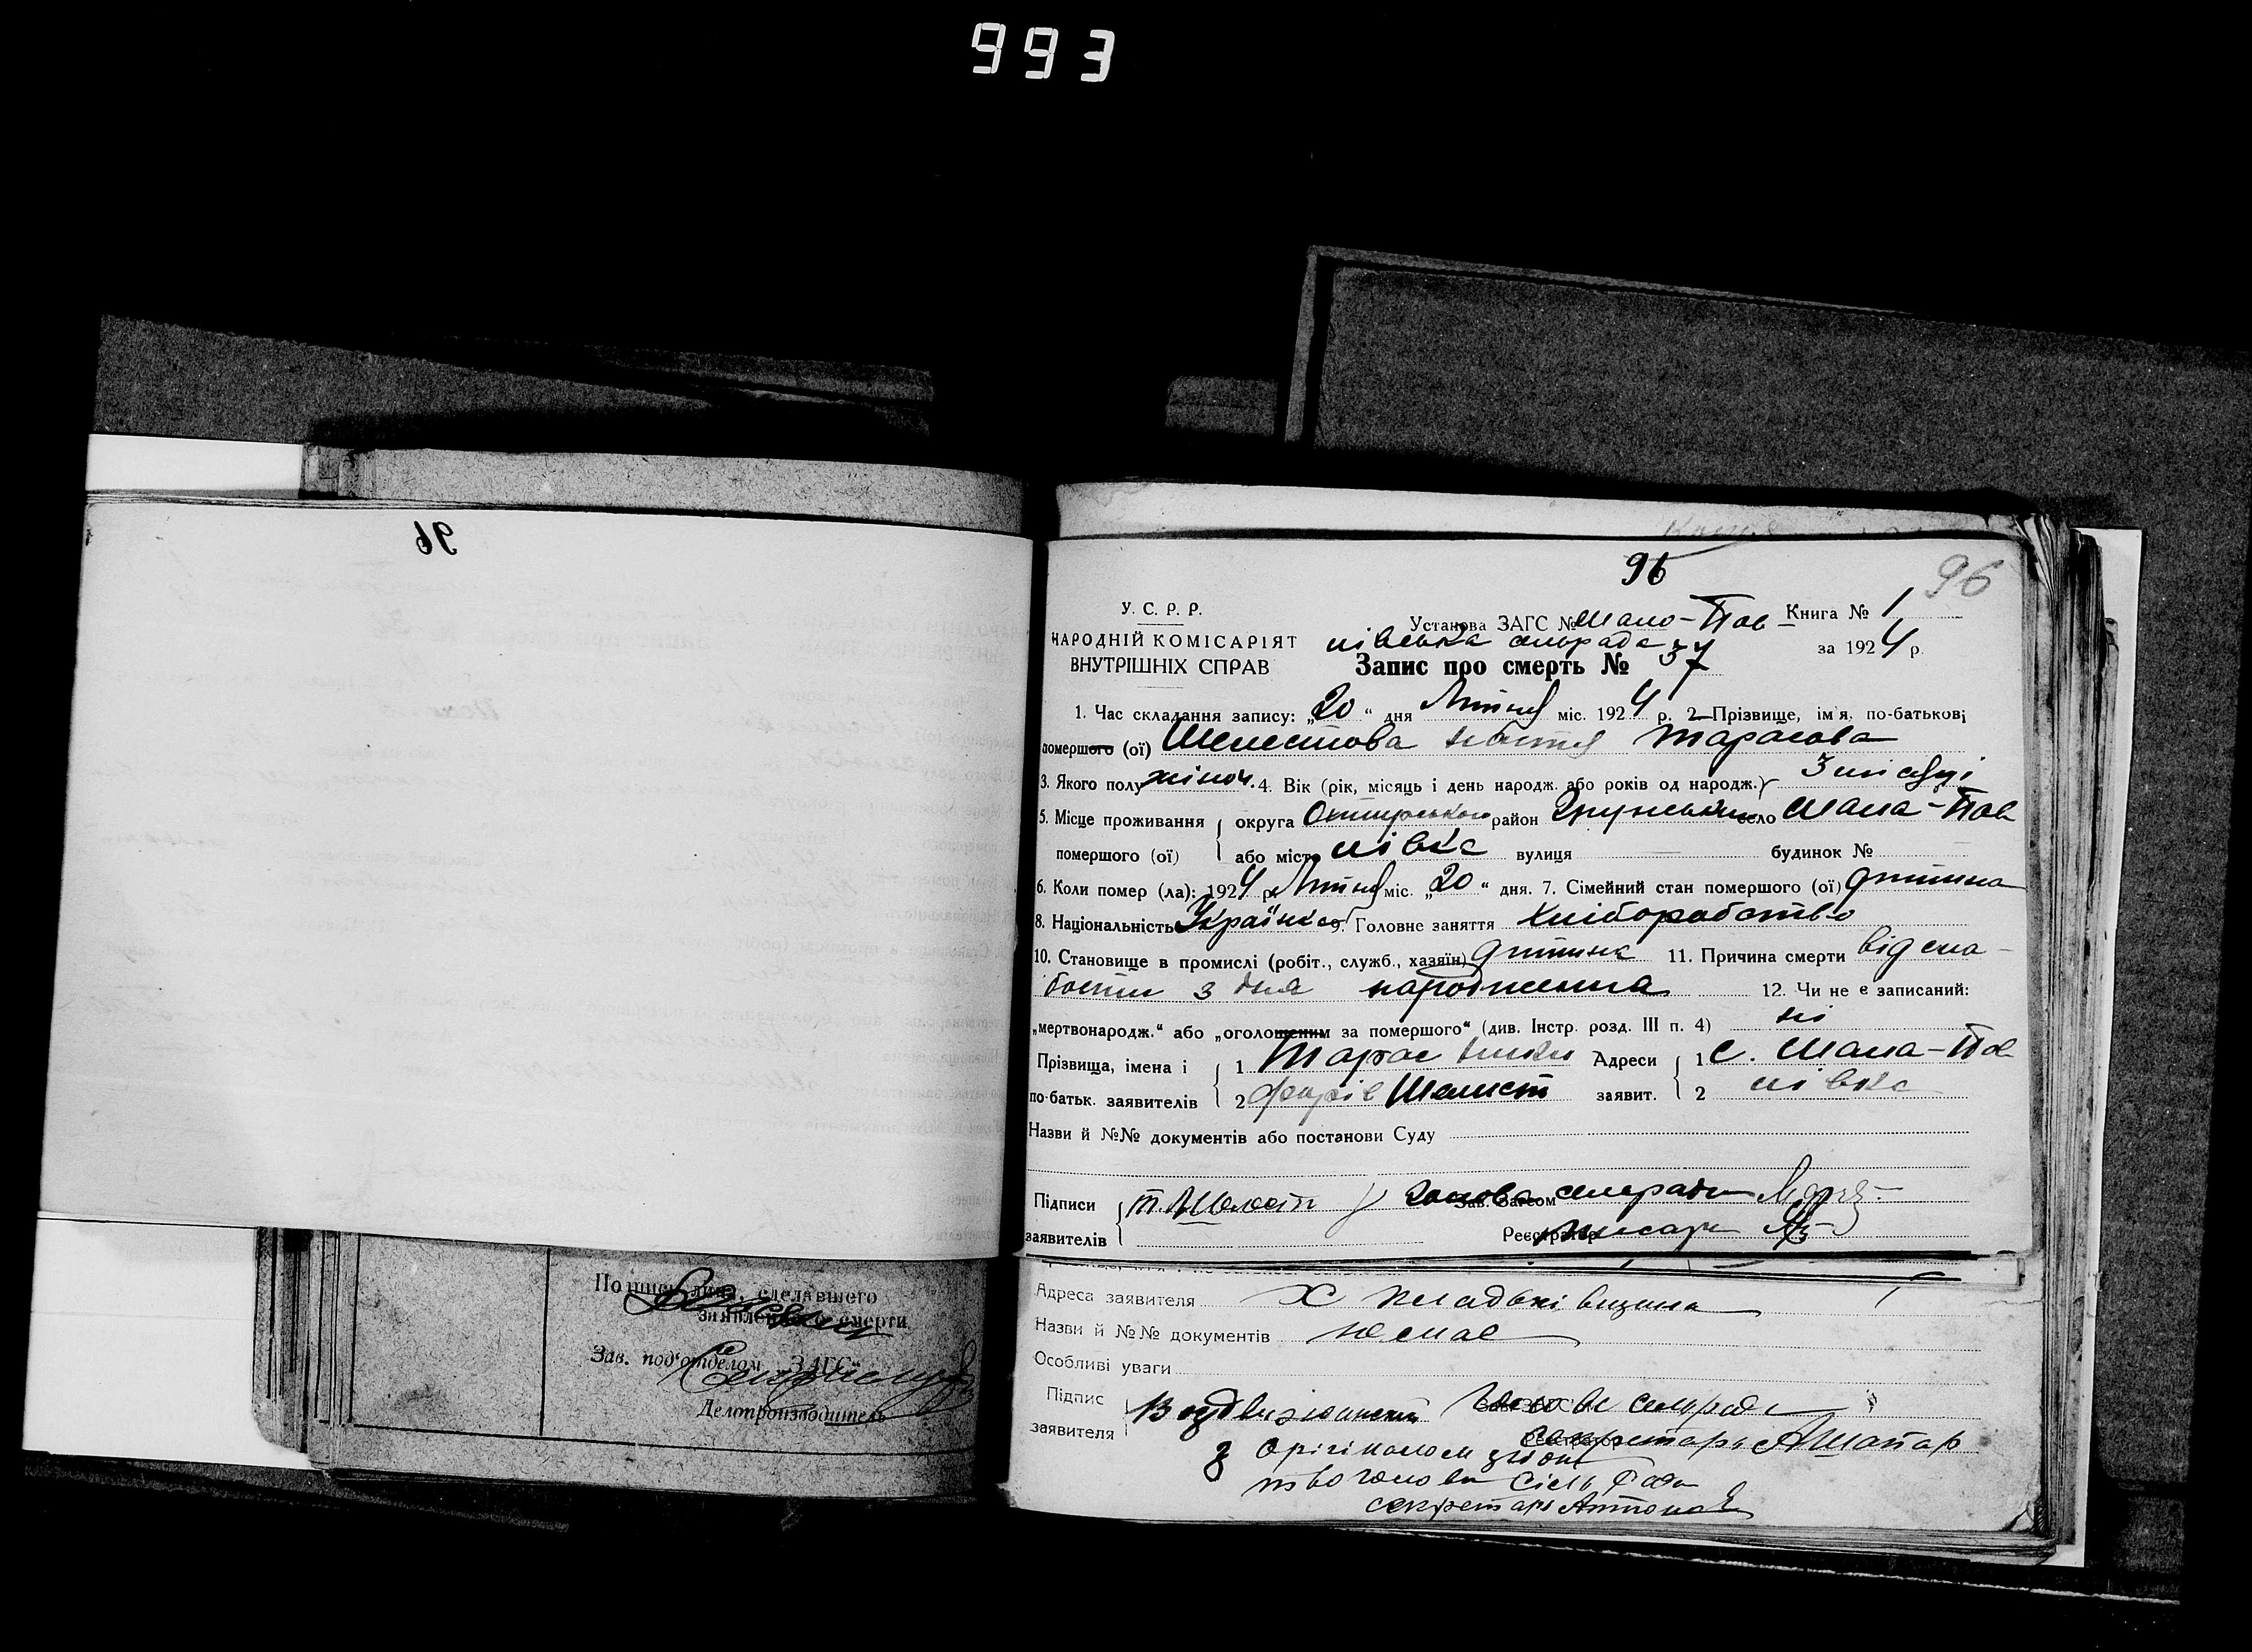 993
96
96
96
У. С. Р. Р.
НАРОДНІЙ КОМІСАРІЯТ
ВНУТРІШНІХ СПРАВ
Установа ЗАГС № Мало-Пав-
лівська сільрада
Книга № 1
за 1924 р.
Запис про смерть № 37
1. Час складання запису: „20“ дня Липня міс. 1924 р. 2 Прізвище, ім'я, по-батькові
помершого (ої) Шелестова Настя Тарасова
3. Якого полу жіноч. 4. Вік (рік, місяць і день народж. або років од народж.) 3 місяці
5. Місце проживання округа район село Мала-Пав
помершого (ої) або місто лівка вулиця — будинок № —
6. Коли помер (ла): 1924 р. Липня міс. „20“ дня. 7. Сімейний стан помершого (ої) дитина
8. Національність Українка 9. Головне заняття хліборобство
10. Становище в промислі (робіт., служб., хазяїн) дитина 11. Причина смерти від сла-
бости з дня народження 12. Чи не є записаний:
„мертвонародж.“ або „оголошеним за помершого“ (див. Інстр. розд. III п. 4) ні
Прізвища, імена і 1 Тарас Адреси 1 с. Мала-Пав
по-батьк. заявителів 2 Шелест заявит. 2 лівка
Назви й №№ документів або постанови Суду
Підписи Т. Шелест Голова сільради
Зав. Загсом
заявителів Реєстратор писарь
Адреса заявителя Х
Назви й №№ документів немає
Особливі уваги
Підпис Воздвиженський Голова сільради
заявителя секретарь АШапар
З Оригіналом
голови Сіль Ради
секретарь
Подпись лица, сделавшего
заявление о смерти
Зав. под'отделом „ЗАГС“
Делопроизводитель